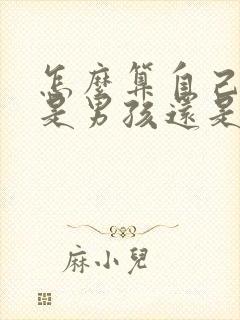 怎麼算自己
是男孩還是
麻小兒